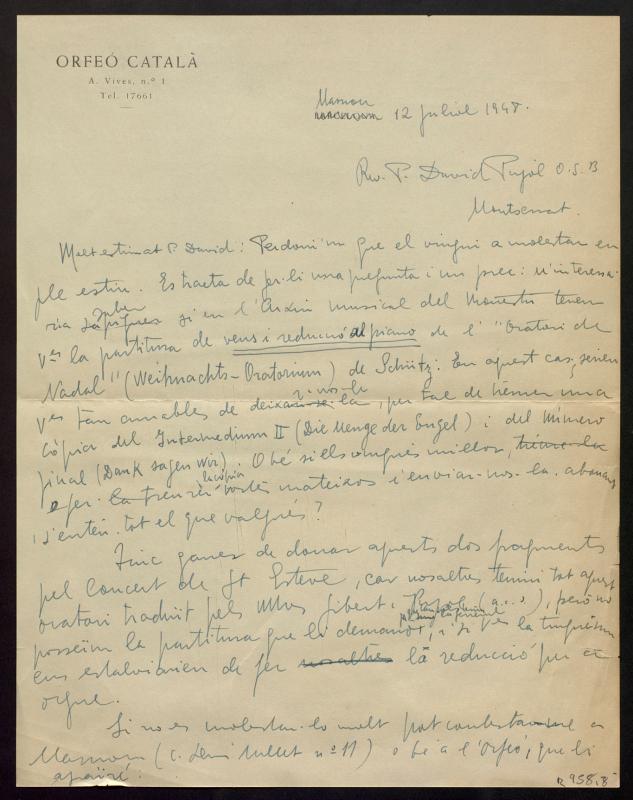 ORFEÓ CATALÀ
A. Vives, n.º 1
Tel. 17661
Masnou
BARCELONA 12 juliol 1948.
Rev. P. David Pujol O.S.B
Montserrat.
Molt estimat P. David: Perdoni'm que el vingui a molestar en
ple estiu. Es tracta de fer-li una pregunta i un prec: m'interessa-
ria saber si en l'Arxiu musical del Monestir tenen
Ves la partitura de veus i reducció al piano de l' "Oratori de
Nadal" (Weihnachts-Oratorium) de Schütz. En aquest cas, serien
Ves tan amables de deixar-nos-la, per tal de treure'n una
còpia del Intermedium II (Die Menge der Engel) i del número
final (Dank sagen wir). O bé si els vingués millor,
fer-la treure la còpia vostès mateixos i enviar-nos-la, abonant
s'entén, tot el que valgués?
Tinc ganes de donar aquests dos fragments
pel Concert de St Esteve, car nosaltres tenim tot aquest
oratori traduït pels Mtres Gibert i Pujol (a...), però no
posseïm la partitura que li demano, i si Vés la tinguessin
ens estalviarien de fer nosaltres la reducció per a
orgue.
Si no es molestar-lo molt pot contestar-me a
Masnou (c. Lluís Millet nº 11) o bé a l'Orfeó, que li
agrairé.
R 958,8